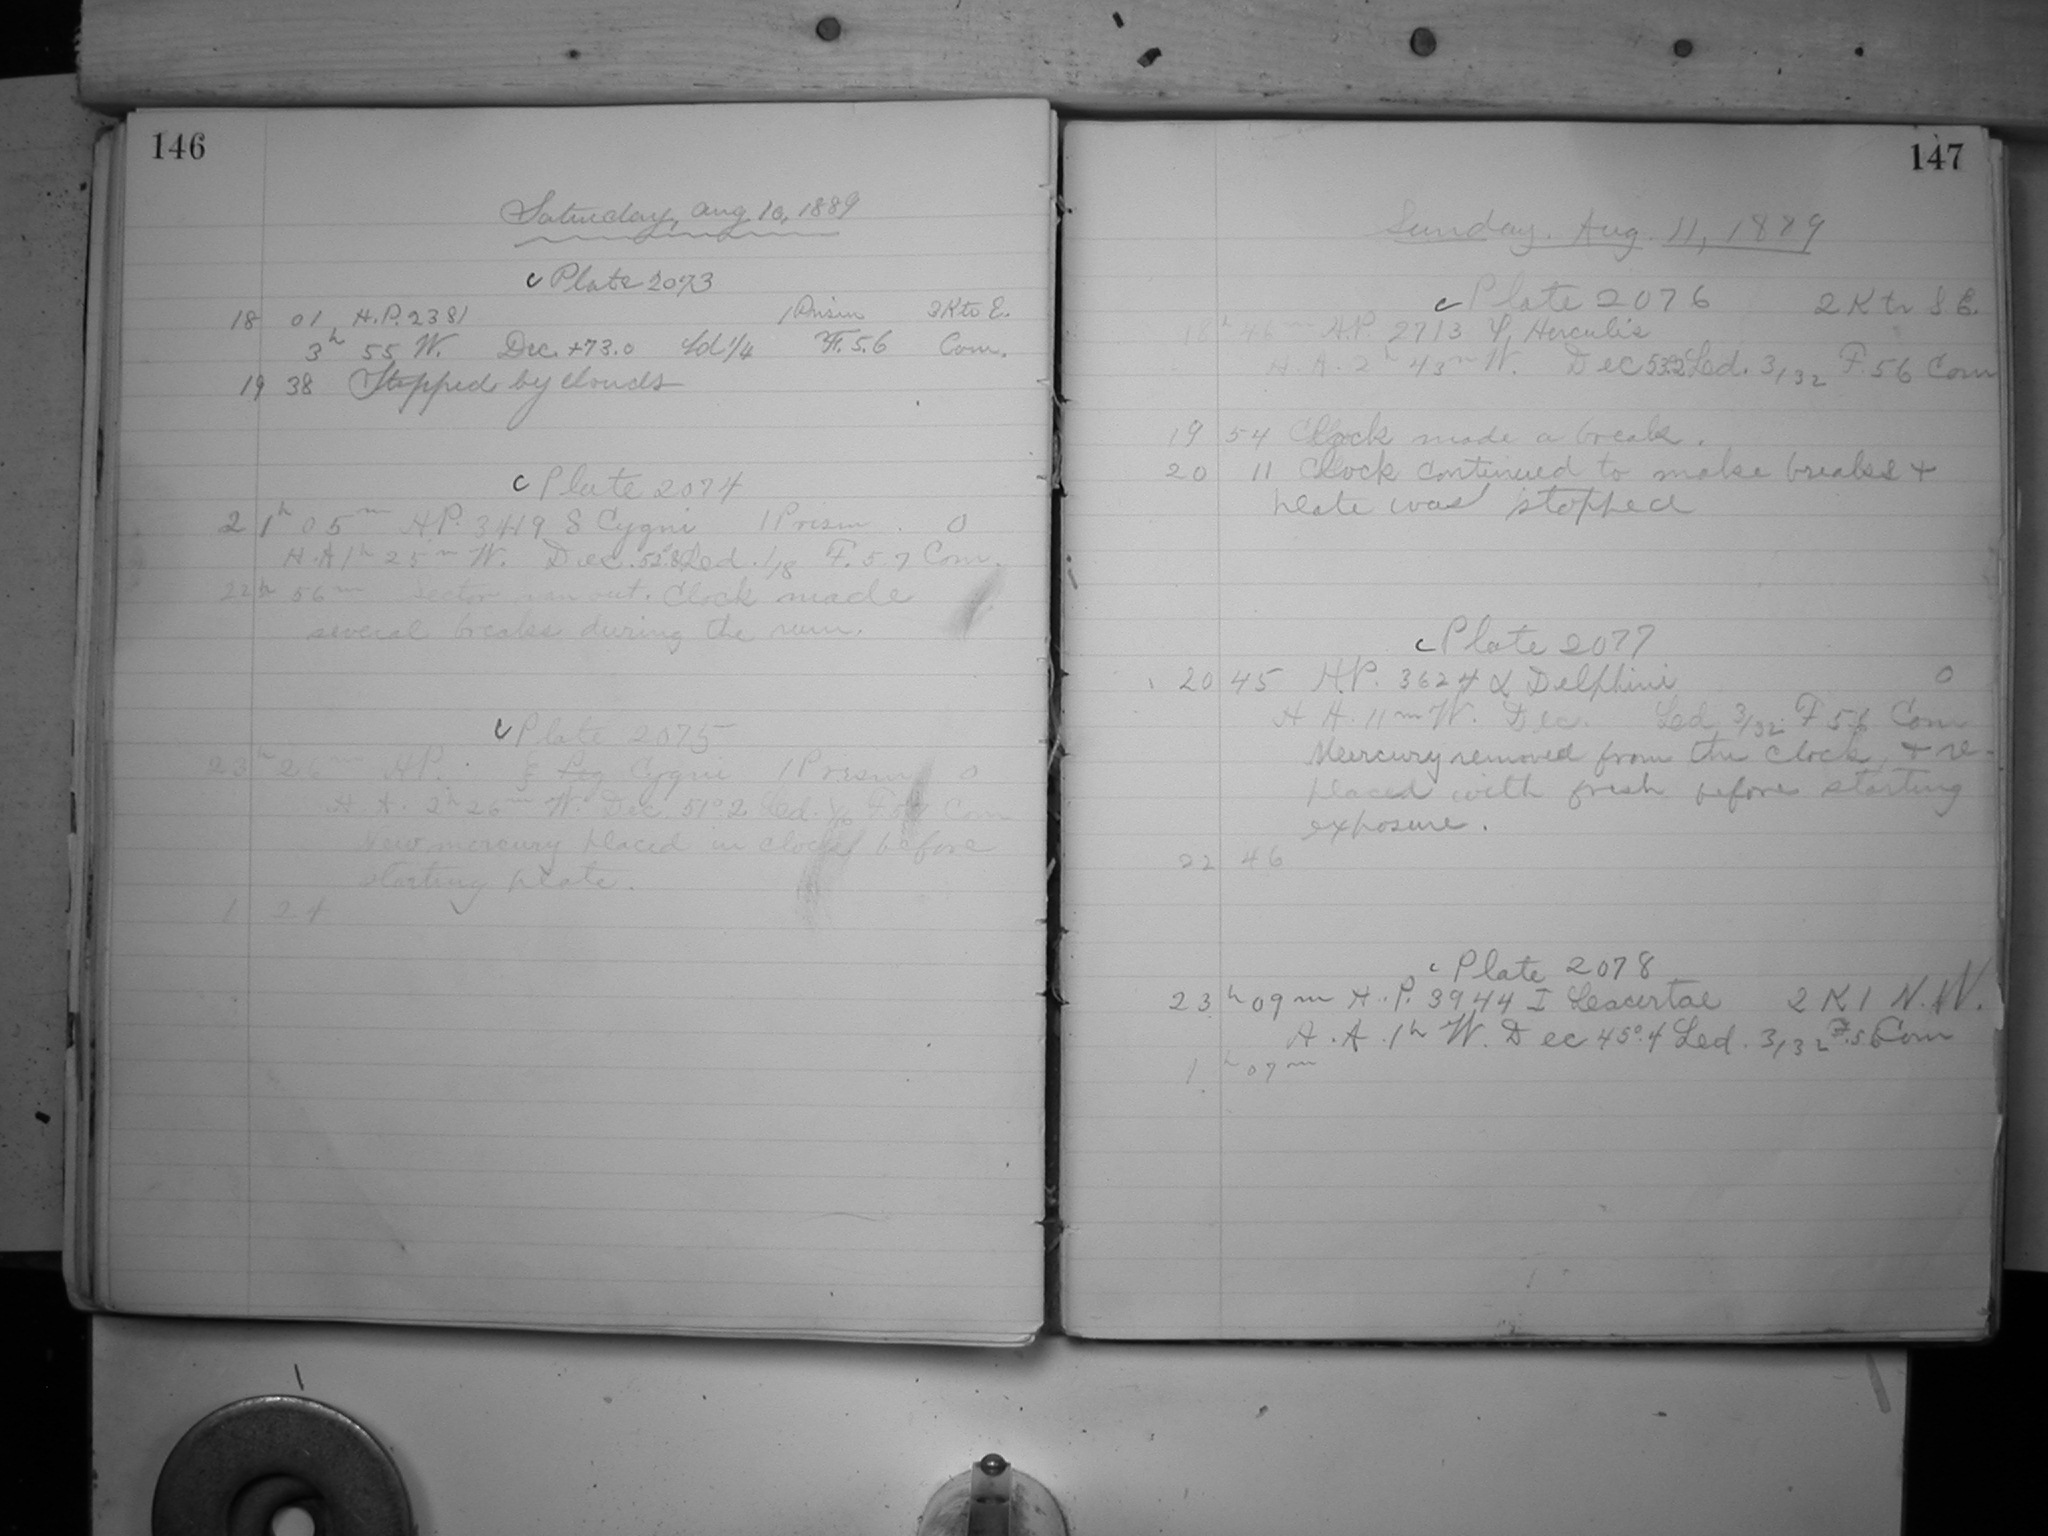 146
Saturday, Aug. 10, 1889
c Plate 2073
18 01 H.P. 2381 1 Prism 3 K to E.
3h 55 W. Dec. +73.0 Led 1/4 F. 5.6 Com.
19 38 Stopped by clouds
c Plate 2074
21h 05m H.P. 3419 8 Cygni 1 Prism. 0
H.A 1h 25m W. Dec. 52.8 Led. 1/8 F. 5 7 Com.
22h 56m Sector ran out. Clock made
several breaks during the run.
c Plate 2075
23h 26m H.P. Cygni 1 Prism 0
H. A. 2h 26m W. Dec. 51°.2 Led. Com
New mercury placed in clock before
starting plate.
1 24
147
Sunday. Aug. 11, 1889
c Plate 2076 2 K to S E.
18h 46m H.P. 2713 Herculis
H. A. 2h 43m W. Dec 53.2 Led. 3/32 F. 5 6 Com
19 54 Clock made a break.
20 11 Clock continued to make breaks +
plate was stopped
c Plate 2077
20 45 H.P. 3624 α Delphini 0
H A. 11m W. Dec. Led 3/32 F 5.6 Com
Mercury removed from the clock + re-
placed with fresh before starting
exposure.
22 46
c Plate 2078
23h 09m H.P. 3944 I Lacertae 2 K 1 N.W.
H.A. 1h W. Dec 45°.4 Led. 3/32 F.5 6 Com
1h 07m